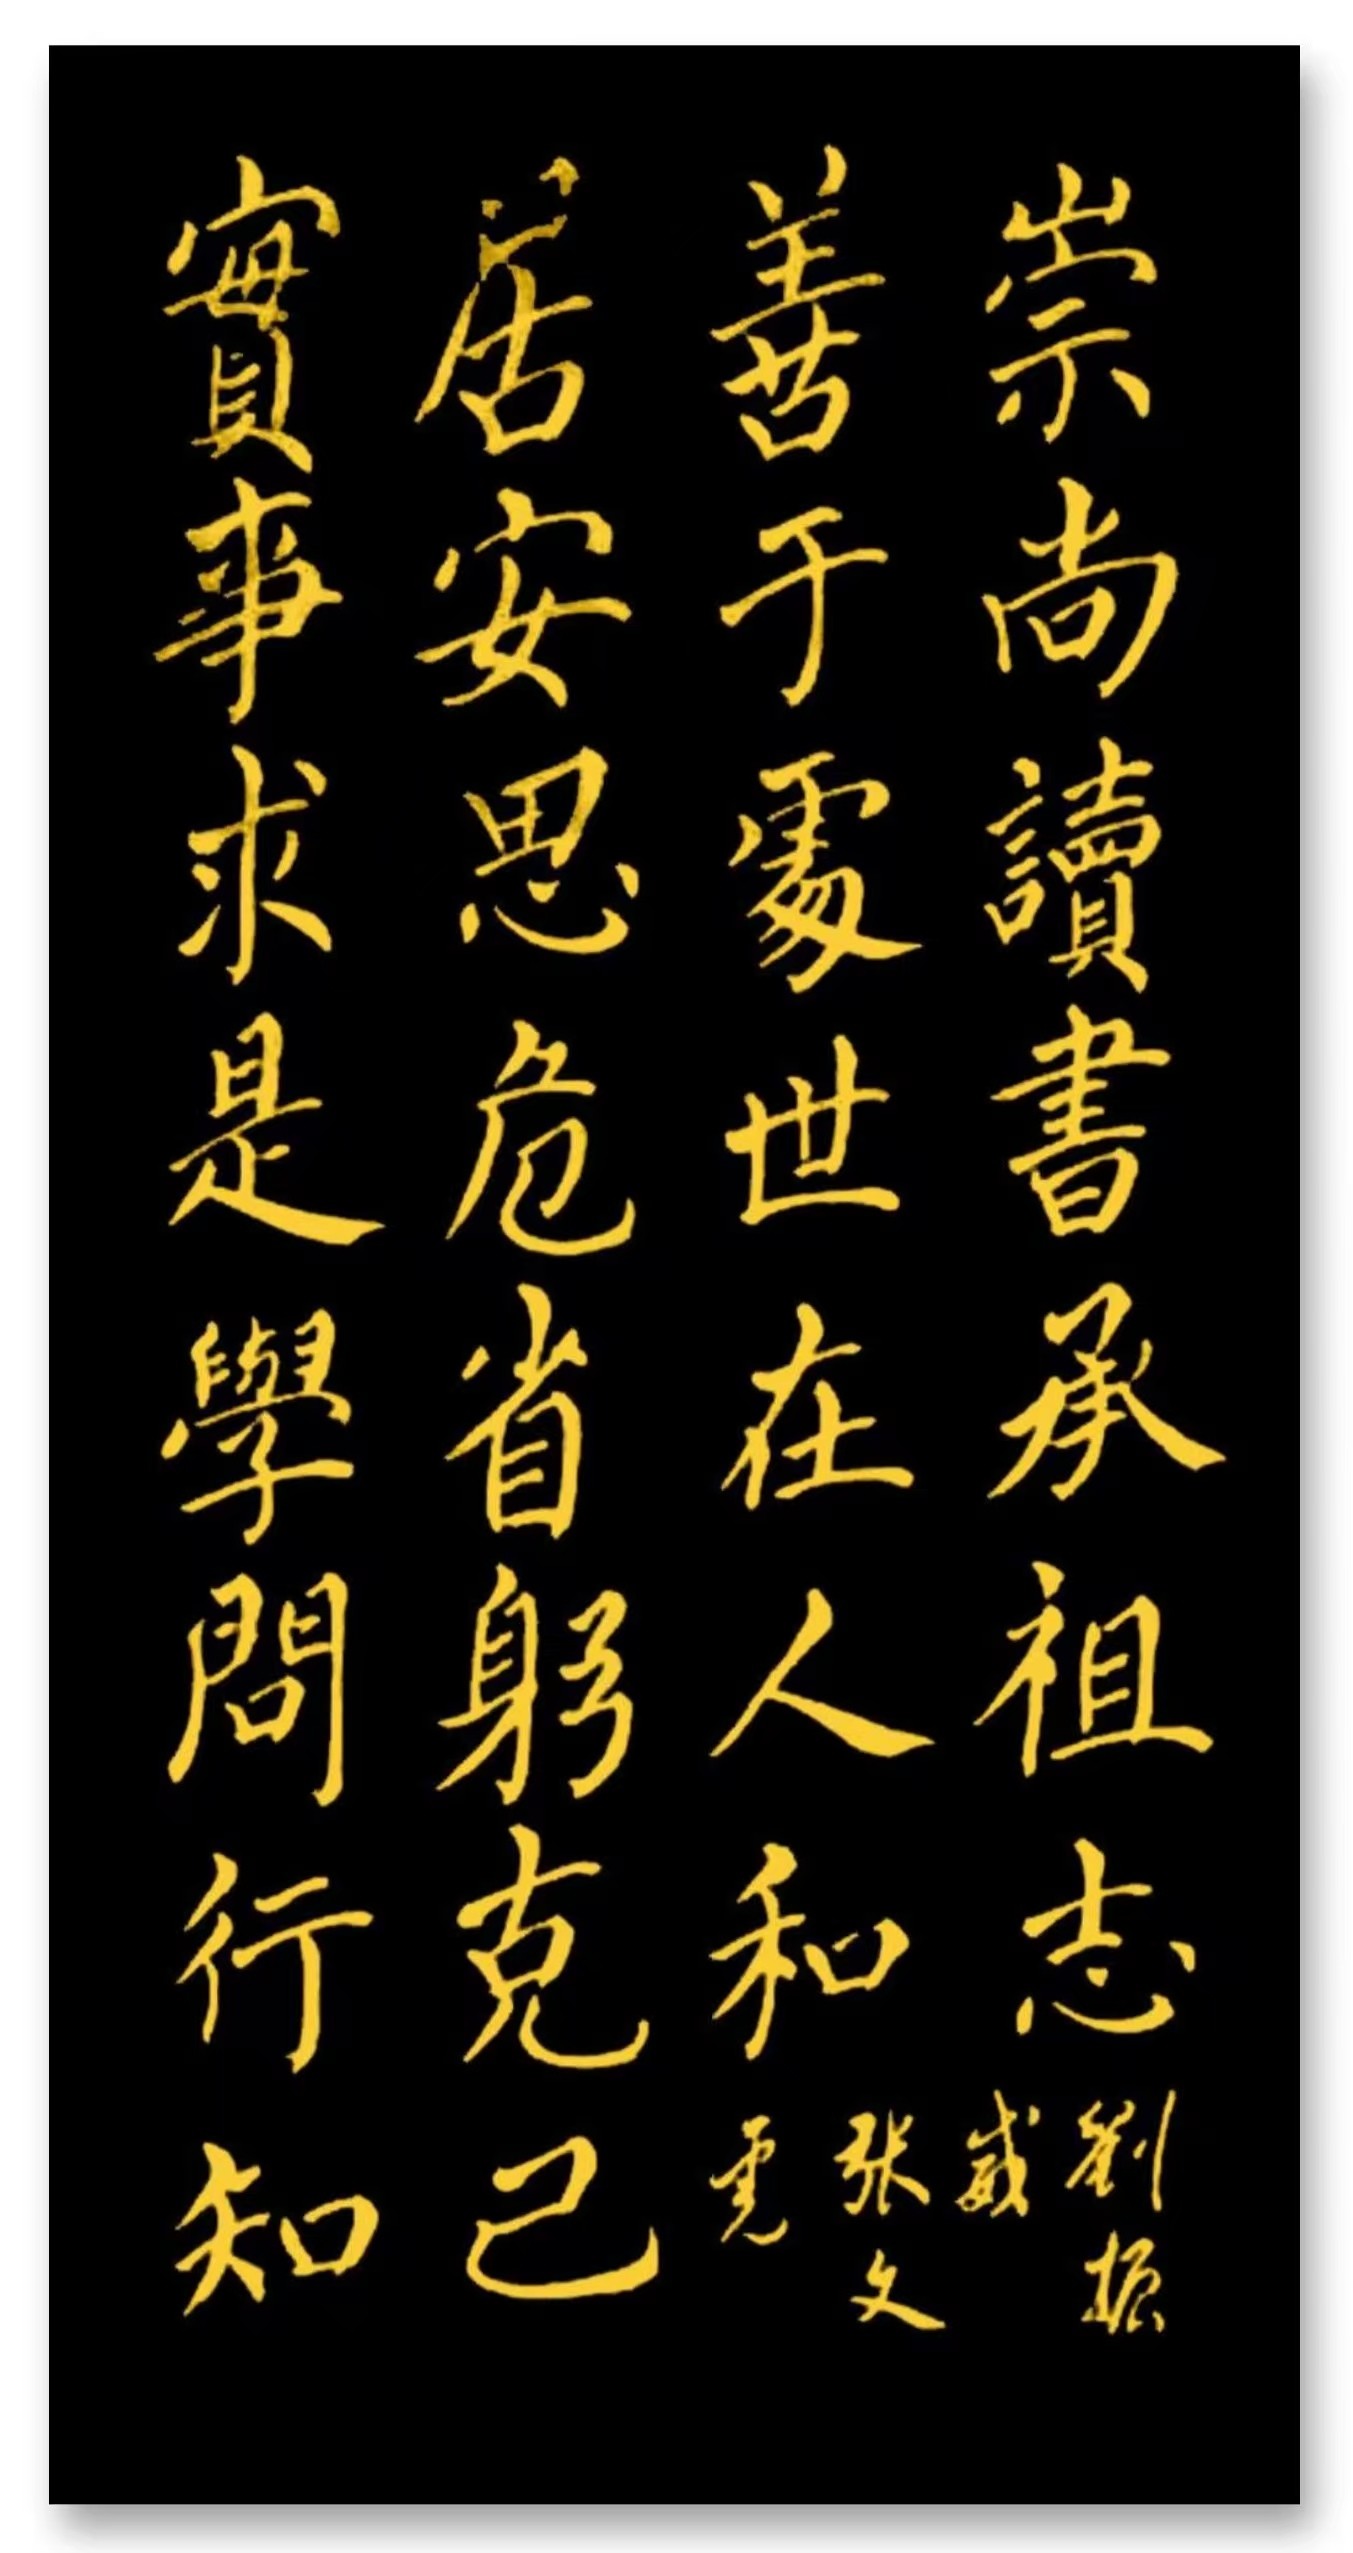 崇尚讀書承祖志
善于處世在人和
居安思危省躬克己
實事求是學問行知
劉振
威
张文